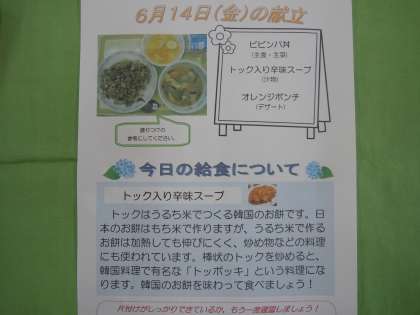 6月14日(金)の献立
ビビンバ丼
(主食・主菜)
トック入り辛味スープ
(汁物)
オレンジポンチ
(デザート)
盛りつけの
参考にしてください。
今日の給食について
トック入り辛味スープ
トックはうるち米でつくる韓国のお餅です。日
本のお餅はもち米で作りますが、うるち米で作る
お餅は加熱しても伸びにくく、炒め物などの料理
にも使われています。棒状のトックを炒めると、
韓国料理で有名な「トッポッキ」という料理にな
ります。韓国のお餅を味わって食べましょう！
片付けがしっかりできているか、もう一度確認しましょう！